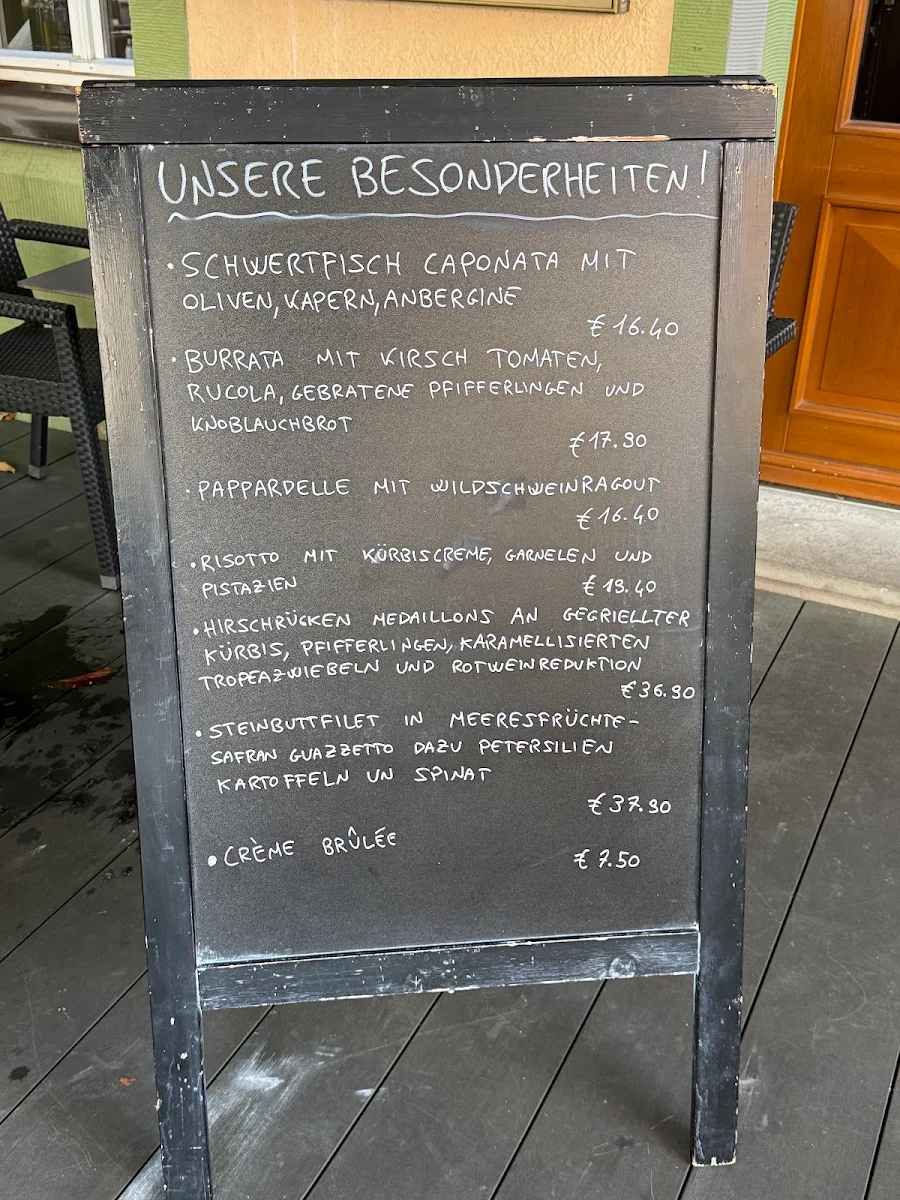 UNSERE BESONDERHEITEN!
• SCHWERTFISCH CAPONATA MIT
OLIVEN, KAPERN, ANBERGINE
€ 16.40
• BURRATA MIT KIRSCH TOMATEN,
RUCOLA, GEBRATENE PFIFFERLINGEN UND
KNOBLAUCHBROT
€ 17.90
• PAPPARDELLE MIT WILDSCHWEINRAGOUT
€ 16.40
• RISOTTO MIT KÜRBISCREME, GARNELEN UND
PISTAZIEN € 19.40
• HIRSCHRÜCKEN MEDAILLONS AN GEGRIELLTER
KÜRBIS, PFIFFERLINGEN, KARAMELLISIERTEN
TROPEAZWIEBELN UND ROTWEINREDUKTION
€ 36.90
• STEINBUTTFILET IN MEERESFRÜCHTE-
SAFRAN GUAZZETTO DAZU PETERSILIEN
KARTOFFELN UN SPINAT
€ 37.90
• CRÈME BRÛLÉE € 7.50